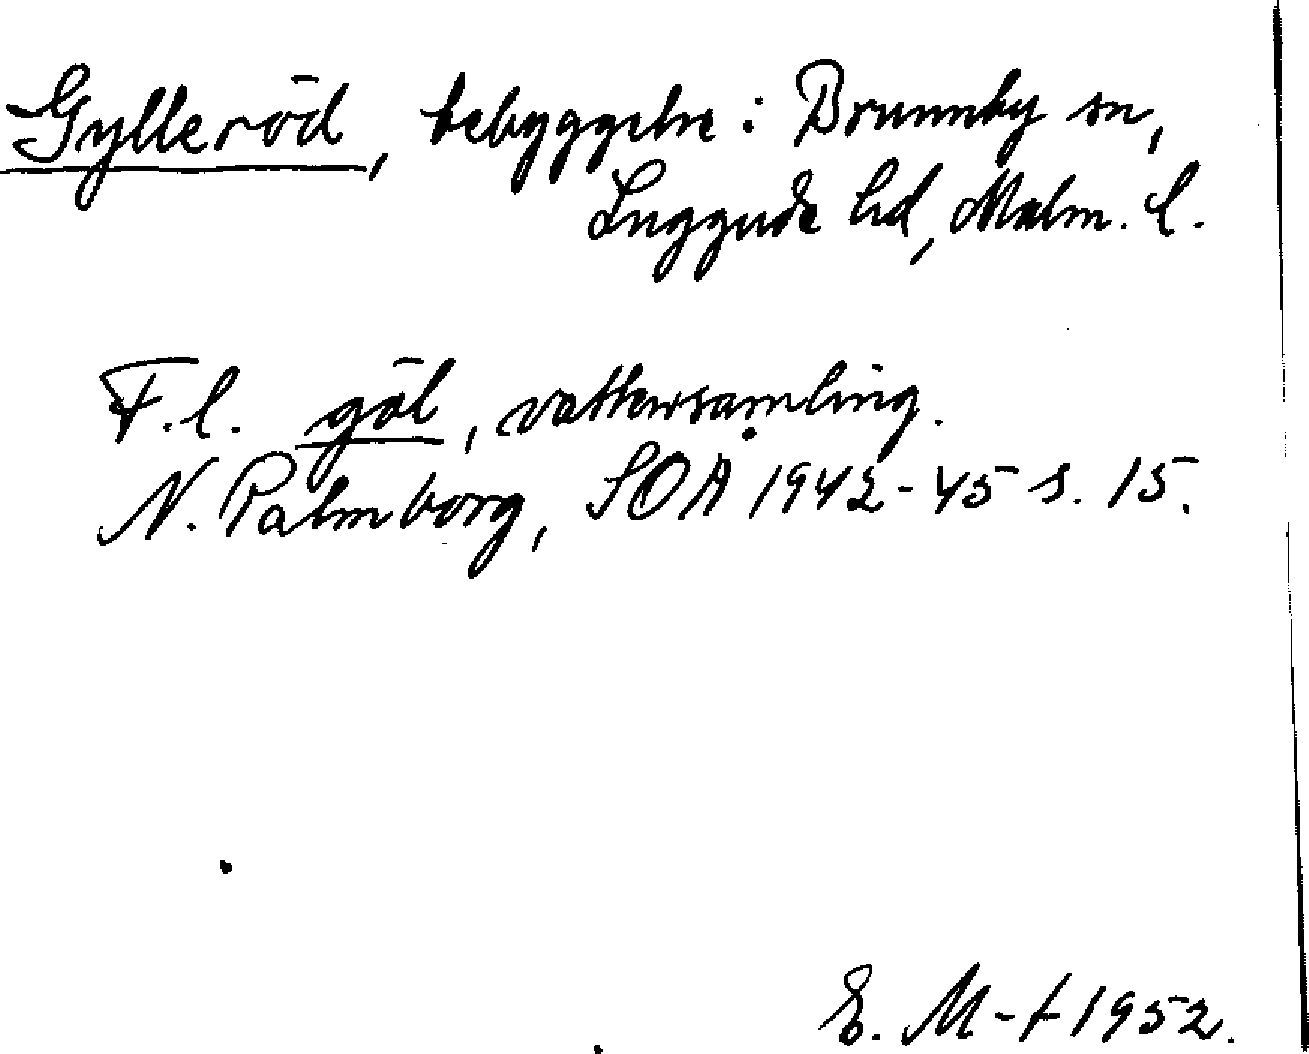 Gylleröd, bebyggelse i Brunnby sn,
Luggude hd, Malm. l.
F.l. göl, vattensamling.
N. Palmborg, SOÅ 1942-45 s. 15.
E. M-t 1952.